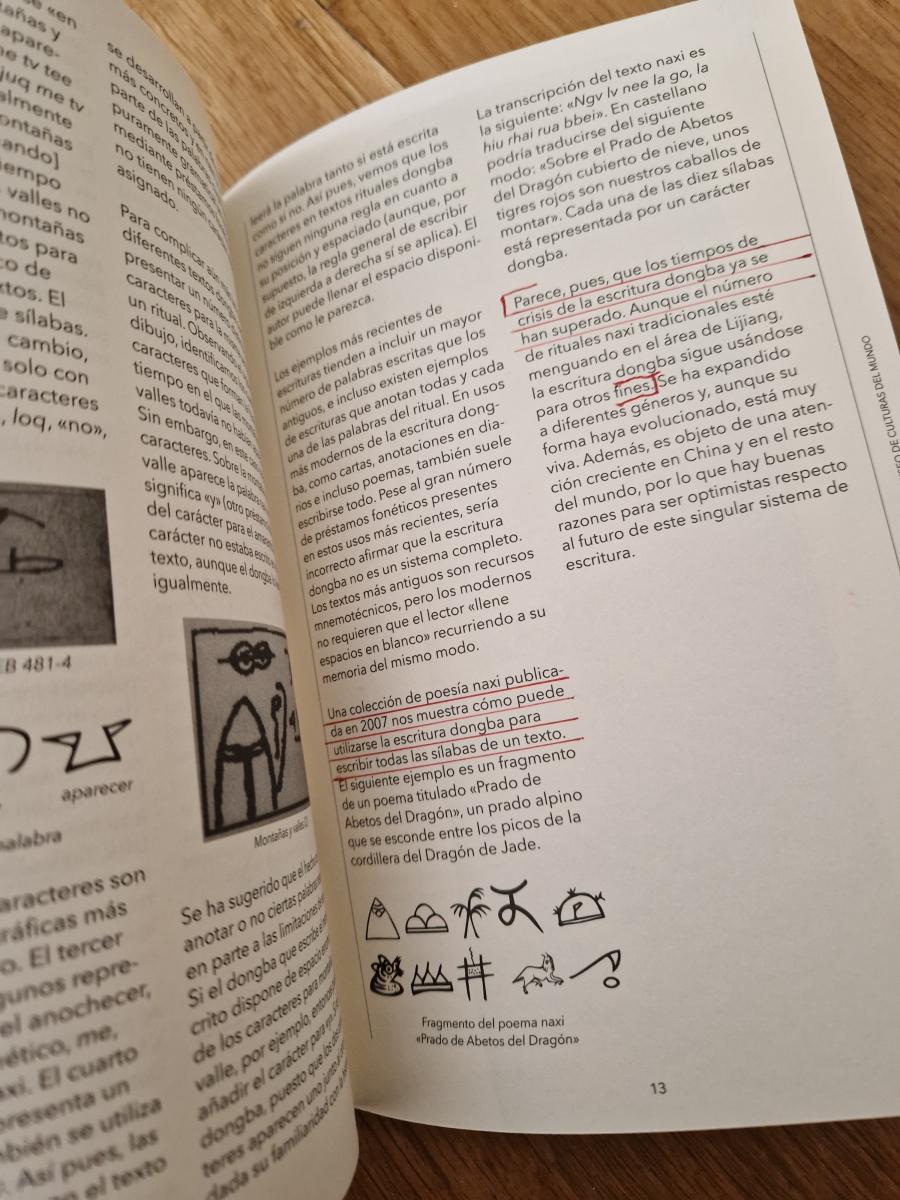 se «en
tañas y
apare-
ne tv tee
juq me tv
almente
ontañas
ando]
iempo
valles no
montañas
tos para
co de
xtos. El
e sílabas.
cambio,
solo con
caracteres
, loq, «no»,
EB 481-4
aparecer
palabra
aracteres son
gráficas más
o. El tercer
gunos repre-
el anochecer,
nético, me,
axi. El cuarto
presenta un
mbién se utiliza
. Así pues, las
el texto
se desarrollan a
más concretos y en
parte de las palabras
puramente
mediante
no tienen ningún
asignado.
Para complicar aún
diferentes textos
presentar un número
caracteres para la
un ritual. Observando
dibujo, identificamos
caracteres que forman
tiempo en el que las
valles todavía no
Sin embargo, en este
caracteres. Sobre la
valle aparece la palabra
significa «y» (otro
del carácter para el
carácter no estaba
texto, aunque el dongba
igualmente.
Montañas y valles
Se ha sugerido que el hecho
anotar o no ciertas palabras
en parte a las limitaciones de
Si el dongba que escribe
crito dispone de espacio
de los caracteres para
valle, por ejemplo, entonces
añadir el carácter para
dongba, puesto que los
teres aparecen uno junto a
dada su familiaridad con
leerá la palabra tanto si está escrita
como si no. Así pues, vemos que los
caracteres en textos rituales dongba
no siguen ninguna regla en cuanto a
su posición y espaciado (aunque, por
supuesto, la regla general de escribir
de izquierda a derecha sí se aplica). El
autor puede llenar el espacio disponi-
ble como le parezca.
Los ejemplos más recientes de
escrituras tienden a incluir un mayor
número de palabras escritas que los
antiguos, e incluso existen ejemplos
de escrituras que anotan todas y cada
una de las palabras del ritual. En usos
más modernos de la escritura dong-
ba, como cartas, anotaciones en dia-
rios e incluso poemas, también suele
escribirse todo. Pese al gran número
de préstamos fonéticos presentes
en estos usos más recientes, sería
incorrecto afirmar que la escritura
dongba no es un sistema completo.
Los textos más antiguos son recursos
mnemotécnicos, pero los modernos
no requieren que el lector «llene
espacios en blanco» recurriendo a su
memoria del mismo modo.
Una colección de poesía naxi publica-
da en 2007 nos muestra cómo puede
utilizarse la escritura dongba para
escribir todas las sílabas de un texto.
El siguiente ejemplo es un fragmento
de un poema titulado «Prado de
Abetos del Dragón», un prado alpino
que se esconde entre los picos de la
cordillera del Dragón de Jade.
Fragmento del poema naxi
«Prado de Abetos del Dragón»
La transcripción del texto naxi es
la siguiente: «Ngv lv nee la go, la
hiu rhai rua bbei». En castellano
podría traducirse del siguiente
modo: «Sobre el Prado de Abetos
del Dragón cubierto de nieve, unos
tigres rojos son nuestros caballos de
montar». Cada una de las diez sílabas
está representada por un carácter
dongba.
Parece, pues, que los tiempos de
crisis de la escritura dongba ya se
han superado. Aunque el número
de rituales naxi tradicionales esté
menguando en el área de Lijiang,
la escritura dongba sigue usándose
para otros fines. Se ha expandido
a diferentes géneros y, aunque su
forma haya evolucionado, está muy
viva. Además, es objeto de una aten-
ción creciente en China y en el resto
del mundo, por lo que hay buenas
razones para ser optimistas respecto
al futuro de este singular sistema de
escritura.
13
SEO DE CULTURAS DEL MUNDO